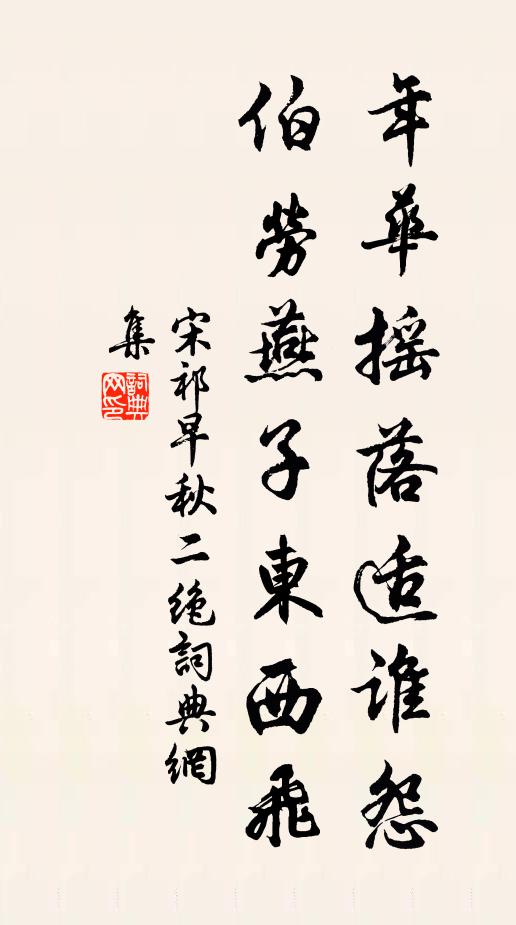 年華摇落适誰怨
伯勞燕子東西飛
宋祁早秋二絶詞典網
集
詞典网印